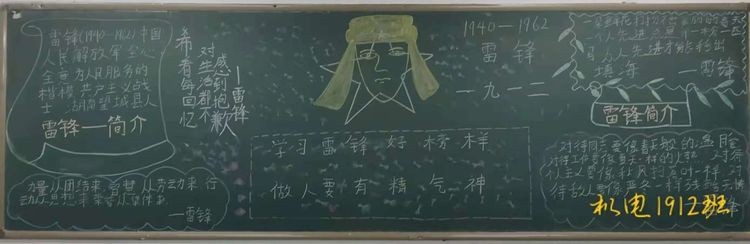 雷锋(1940-1962)中国
人民解放军全心
全意为人民服务的
楷模 共产主义战
士 湖南望城县人
雷锋一简介
力量从团结来 智慧从劳动来 行
动从思想来 荣誉从集体来
—雷锋
希看每回忆
对生活都不
感到抱歉
—雷锋
1940—1962
雷锋
一九一二
学习雷锋好榜样
做人要有精气神
一朵鲜花打扮不
一个人先进总是
人先进才能移山
填海 —雷锋
雷锋简介
对待同志要像春天般的温暖
对待工作要像夏天一样的火热 对待
个人主义要像秋风扫落叶一样 对
待敌人要像
机电1912班